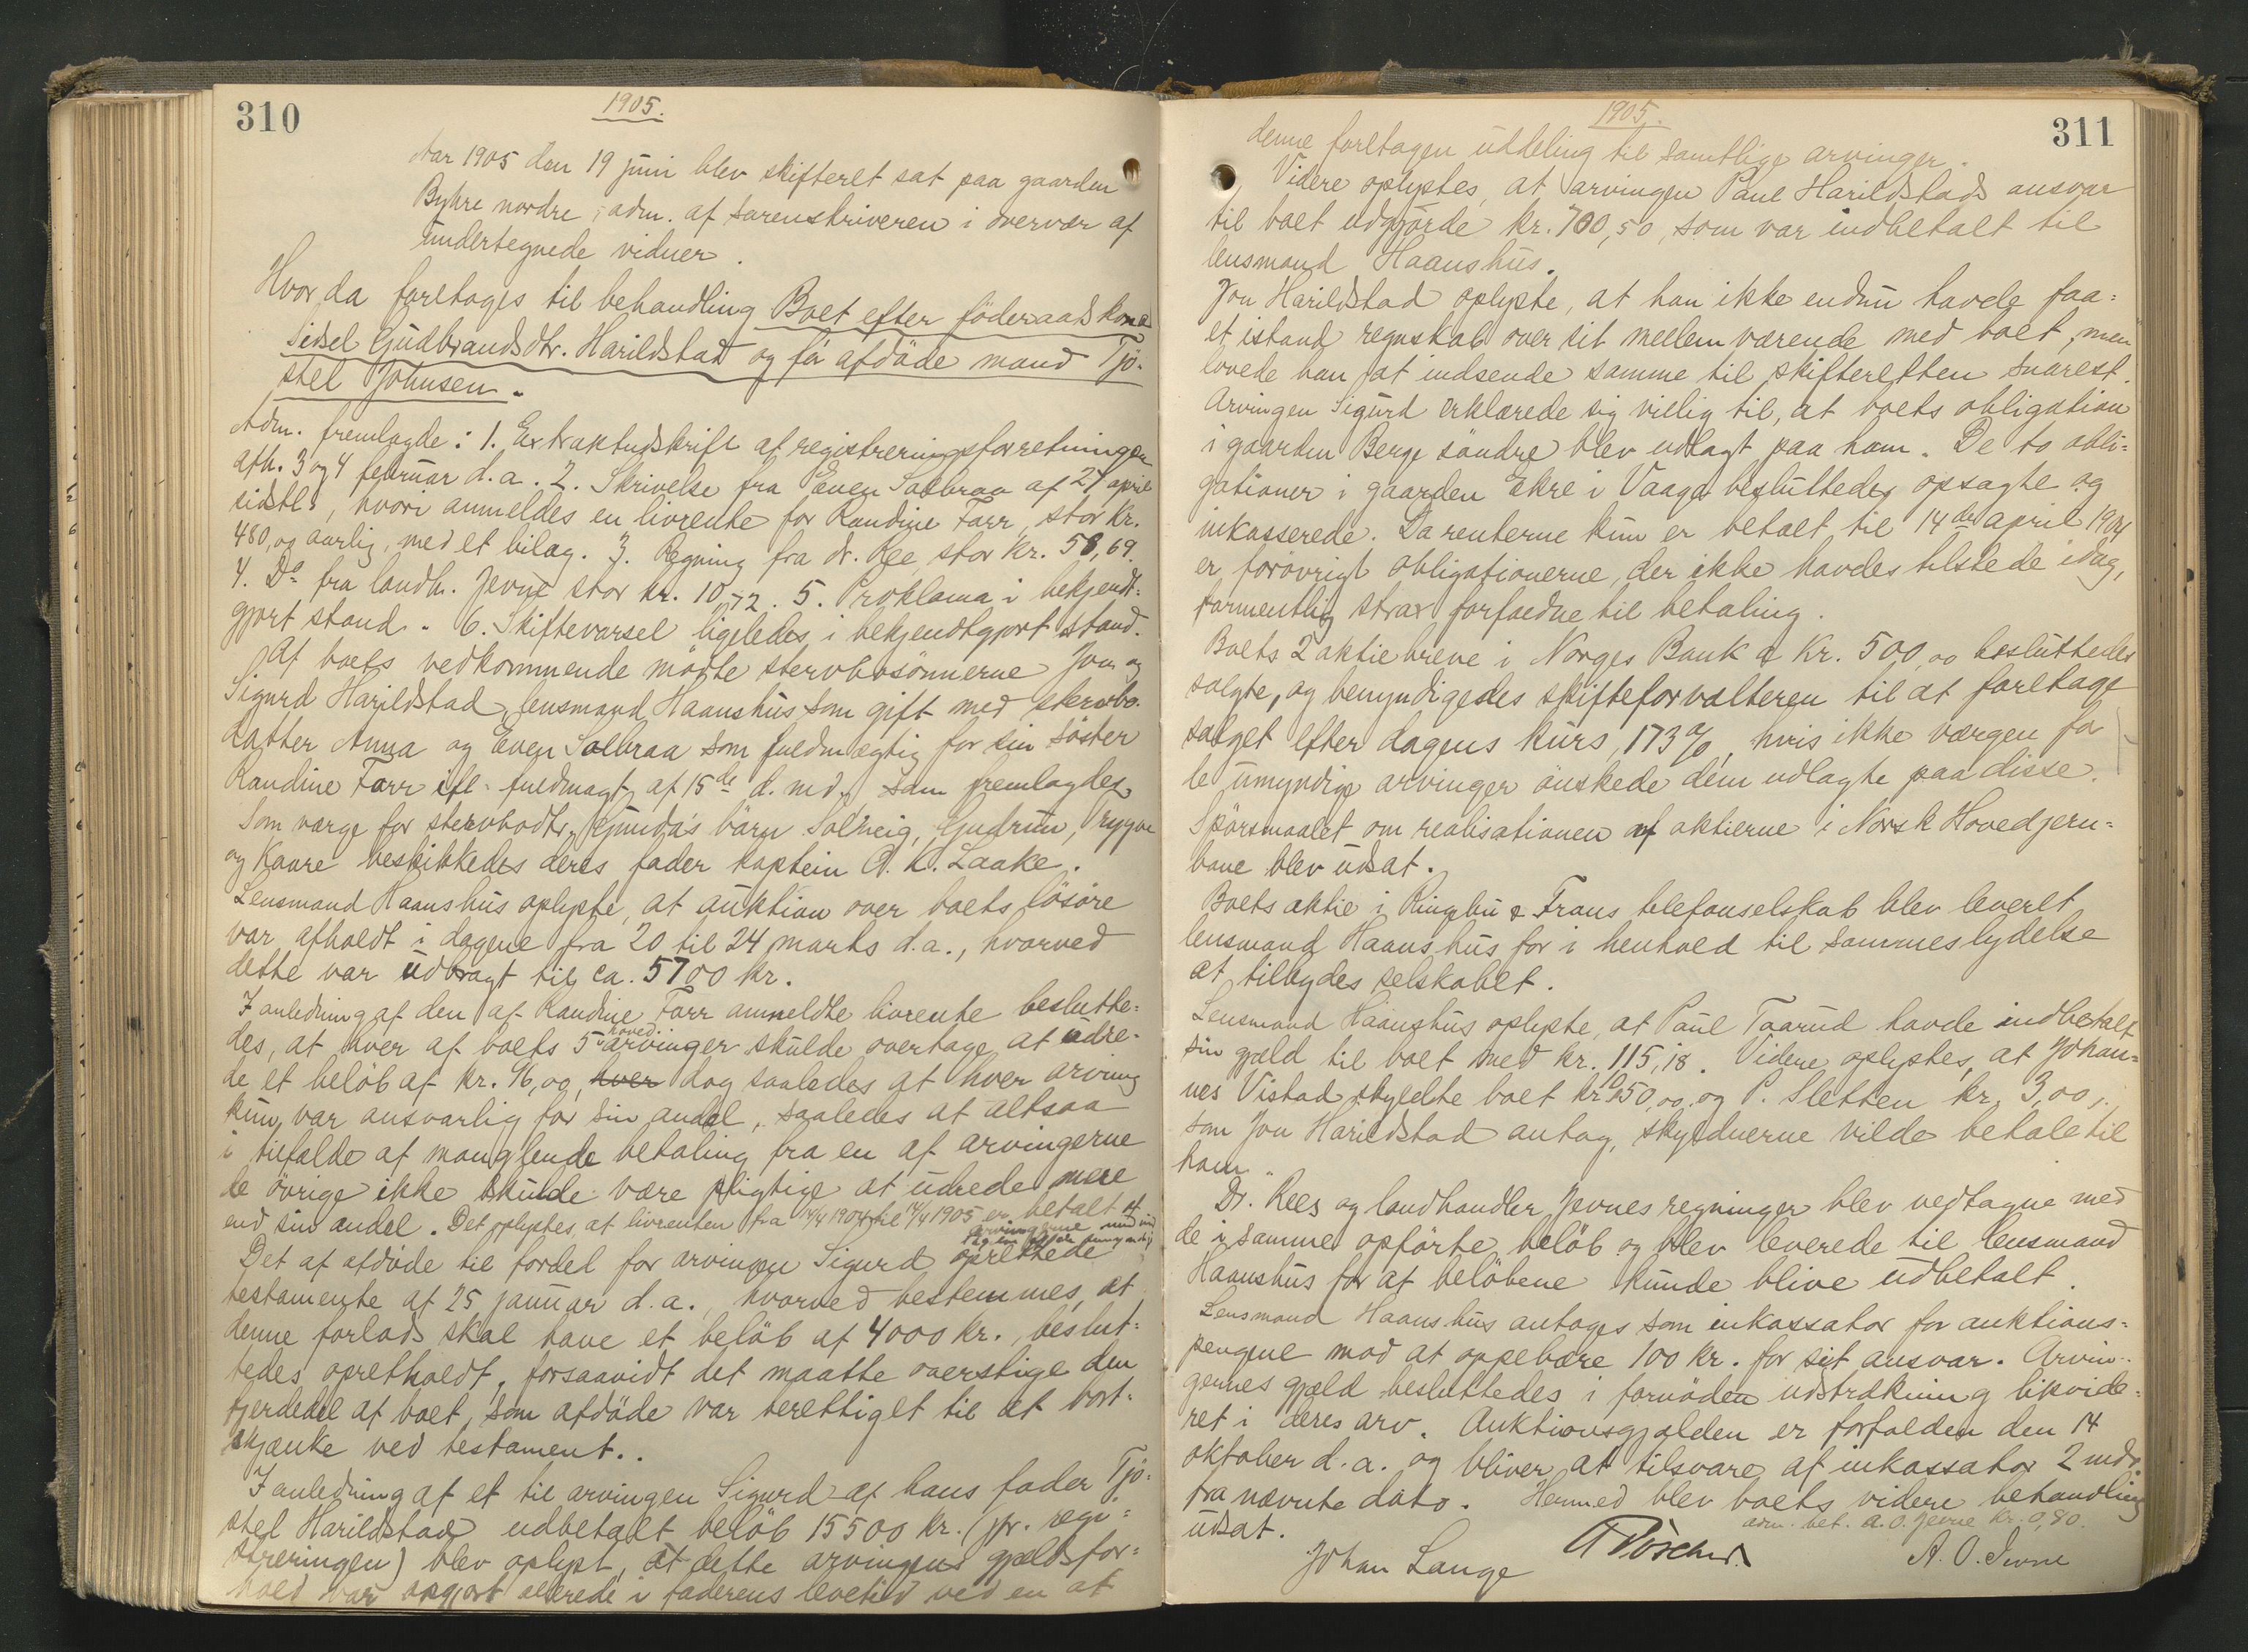 310
1905.
Aar 1905 den 19 juni blev skifteret sat paa gaarden
Byhre nordre, adm. af sorenskriveren i overvær af
undertegnede vidner.
Hvor da foretoges til behandling Boet efter föderaadskone
Sidsel Gudbrandsdtr. Harildstad og før afdöde mand Tjö-
stel Johnsen.
Adm. fremlagde: 1. Extraktudskrift af registreringsforretningen
afh. 3 og 4 februar d.a. 2. Skrivelse fra Even Solbraa af 27 april
sidstl., hvori anmeldes en livrente for Randine Farr, stor kr.
480,00 aarlig, med et bilag. 3. Regning fra dr. Ree stor kr. 58,69.
4. Do fra landh. Jevne stor kr. 10,72. 5. Proklama i bekjendt-
gjort stand. 6. Skiftevarsel ligeledes i bekjendtgjort stand.
Af boets vedkommende mödte stervbosönnerne Jon og
Sigurd Harildstad, lensmand Haanshus som gift med stervbo-
datter Anna og Even Solbraa som fuldmægtig for sin söster
Randine Farr ifl. fuldmagt af 15de d. md., som fremlagdes.
Som værge for stervbodtr. Gunda's börn Solveig, Gudrun, Trygve
og Kaare beskikkedes deres fader kaptein A. K. Laake.
Lensmand Haanshus oplyste, at auktion over boets lösöre
var afholdt i dagene fra 20 til 24 marts d.a., hvorved
dette var udbragt til ca. 5700 kr.
I anledning af den af Randine Farr anmeldte livrente beslutte-
des, at hver af boets 5 hoved-arvinger skulde overtage at udre-
de et belöb af kr. 96,00, hver dog saaledes at hver arving
kun var ansvarlig for sin andel, saaledes at altsaa
i tilfælde af manglende betaling fra en af arvingerne
de övrige ikke skulde være pligtige at udrede mere
end sin andel. Det oplystes, at livrenten fra 14/4 1904 til 14/4 1905 er betalt af
arvingerne
Det af afdöde til fordel for arvingen Sigurd oprettede
testamente af 25 januar d.a., hvorved bestemmes, at
denne forlods skal have et belöb af 4000 kr., beslut-
tedes opretholdt, forsaavidt det maatte overstige den
fjerdedel af boet, som afdöde var berettiget til at bort-
skjænke ved testament.
I anledning af et til arvingen Sigurd af hans fader Tjö-
stel Harildstad udbetalt belöb 15500 kr. (jfr. regi-
streringen) blev oplyst, at dette arvingens gjældsfor-
hold var opgjort allerede i faderens levetid ved en af
311
1905.
denne foretagen uddeling til samtlige arvinger.
Videre oplystes, at arvingen Paul Harildstads ansvar
til boet udgjorde kr. 700,50, som var indbetalt til
lensmand Haanshus.
Jon Harildstad oplyste, at han ikke endnu havde faa-
et istand regnskab over sit mellemværende med boet, men
lovede han at indsende samme til skifteretten snarest.
Arvingen Sigurd erklærede sig villig til, at boets obligation
i gaarden Berge söndre blev udlagt paa ham. De to obli-
gationer i gaarden Ekre i Vaage besluttedes opsagte og
inkasserede. Da renterne kun er betalt til 14de april 1904
er forövrigt obligationerne, der ikke havdes tilstede idag,
formentlig strax forfaldne til betaling.
Boets 2 aktiebreve i Norges Bank a Kr. 500,00 besluttedes
solgte, og bemyndigedes skifteforvalteren til at foretage
salget efter dagens kurs, 173 %, hvis ikke værgen for
de umyndige arvinger önskede dem udlagte paa disse.
Spörsmaalet om realisationen af aktierne i Norsk Hovedjern-
bane blev udsat.
Boets aktie i Ringebu & Frons telefonselskab blev leveret
lensmand Haanshus for i henhold til sammes lydelse
at tilbydes selskabet.
Lensmand Haanshus oplyste, at Paul Taarud havde indbetalt
sin gjæld til boet med kr. 115,18. Videre oplystes, at Johan-
nes Vistad skyldte boet kr. 1050,00 og P. Sletten kr. 3,00,
som Jon Harildstad antog, skyldnerne vilde betale til
ham.
Dr. Rees og landhandler Jevnes regninger blev vedtagne med
de i samme opförte belöb og blev leverede til lensmand
Haanshus for at belöbene kunde blive udbetalt.
Lensmand Haanshus antoges som inkassator for auktions-
pengene mod at oppebære 100 kr. for sit ansvar. Arvin-
gernes gjæld besluttedes i fornöden udstrækning likvide-
ret i deres arv. Auktionsgjælden er forfalden den 14
oktober d.a. og bliver at tilsvare af inkassator 2 mdr.
fra nævnte dato. Hermed blev boets videre behandling
udsat.
adm. bet. A.O. Jevne kr. 0,80.
Johan Lange
A. O. Jevne